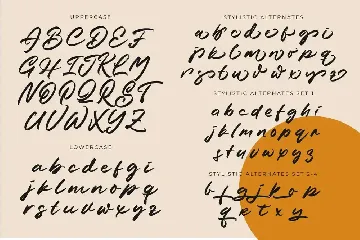 UPPERCASE
ABCDEF
GHIJKLM
NOPQRST
UVWXYZ
LOWERCASE
abcdefgi
jklmnopq
rstuvwxyz
STYLISTIC ALTERNATES
rstuvwxyz
STYLISTIC ALTERNATES SET 1
abcdefghi
jklmnopqr
stuvwxyz
STYLISTIC ALTERNATES SET 2-4
b f g j k o p
q e t x y